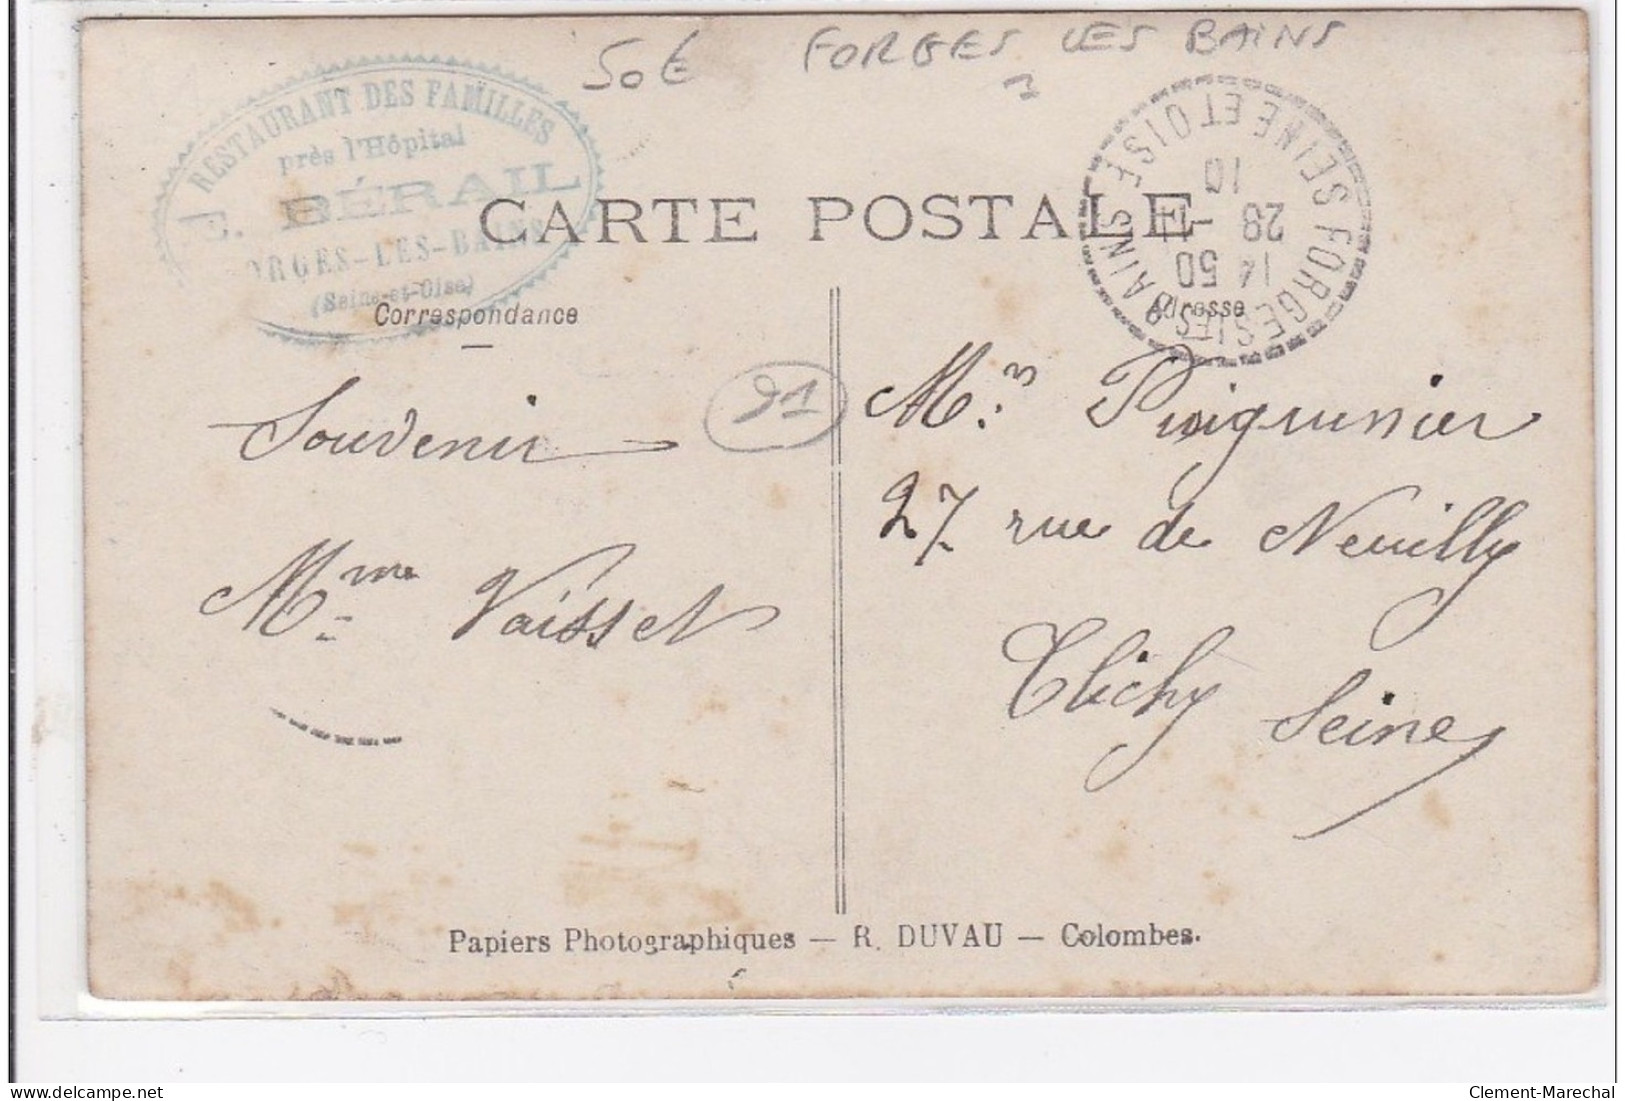 50€ FORGES LES BAINS
RESTAURANT DES FAMILLES
près l'Hôpital
E. BÉRAIL
ORGES-LES-BAINS
(Seine-et-Oise)
FORGES LES BAINS SEINE ET OISE
14 50
28
10
CARTE POSTALE
Correspondance
Adresse
91
Souvenir
Mme Vaisset
Mr
27 rue de Neuilly
Clichy
Seine
Papiers Photographiques — R. DUVAU — Colombes.
Clement-Marechal